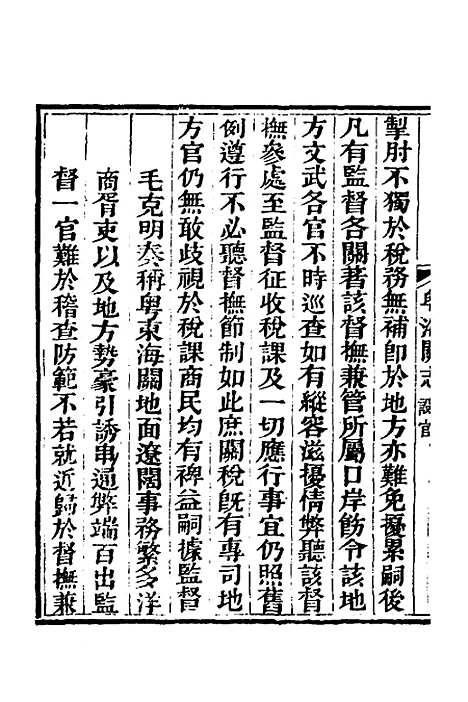 粵海關志 設官
掣肘不獨於稅務無補卽於地方亦難免擾累嗣後
凡有監督各關著該督撫兼管所屬口岸飭令該地
方文武各官不時巡查如有縱容滋擾情弊聽該督
撫參處至監督征收稅課及一切應行事宜仍照舊
例遵行不必聽督撫節制如此庶關稅旣有專司地
方官仍無敢歧視於稅課商民均有裨益嗣據監督
毛克明奏稱粵東海關地面遼闊事務繁多洋
商胥吏以及地方勢豪引誘串通弊端百出監
督一官難於稽查防範不若就近歸於督撫兼